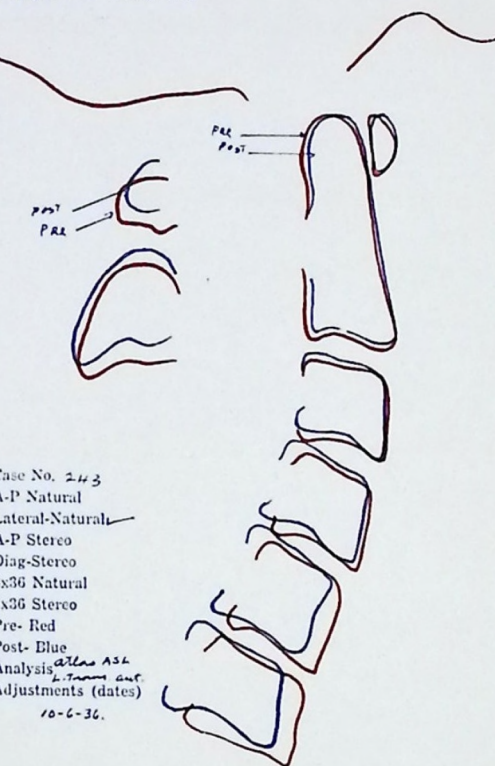 PRE
POST
POST
PRE
Case No. 243
A-P Natural
Lateral-Natural
A-P Stereo
Diag-Stereo
x36 Natural
x36 Stereo
Pre- Red
Post- Blue
Analysis atlas ASL
L. Trans ant.
Adjustments (dates)
10-6-36.